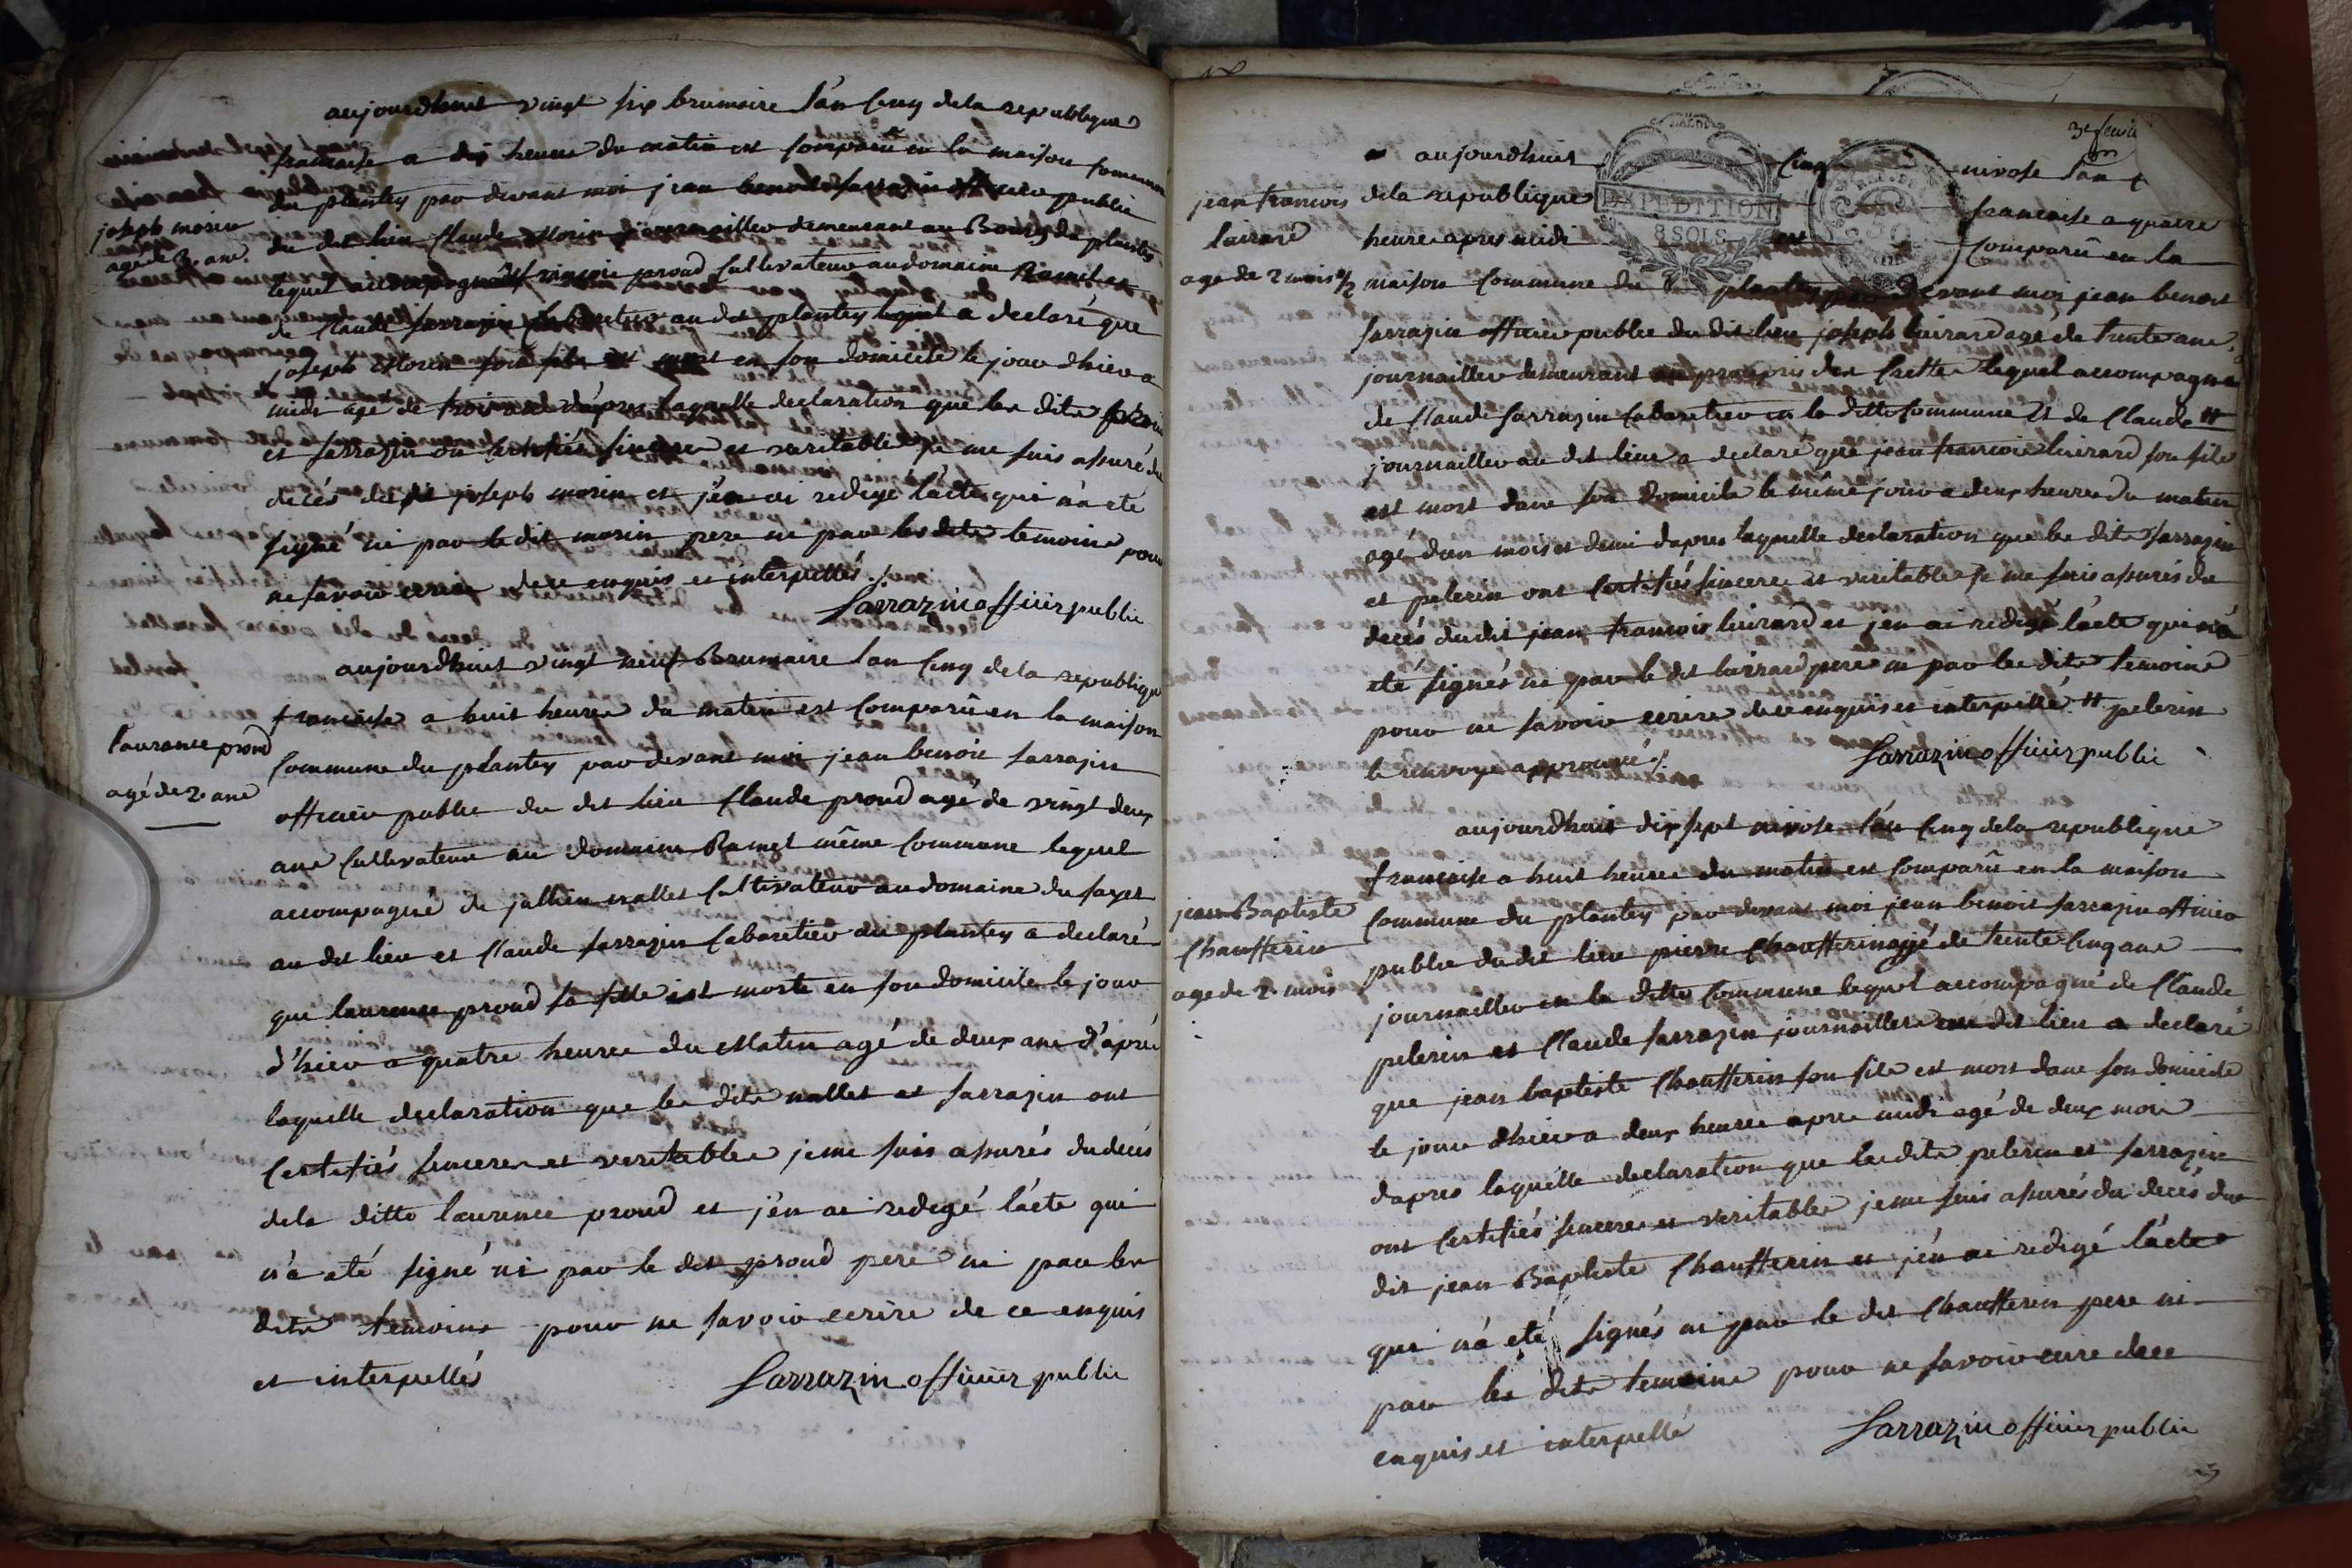 aujourdhuit vingt six brumaire l'an cinq dela republique
francaise a dix heures du matin est comparu en la maison commune
du plantey par devant moi jean benoit sarrazin officier public
du dit lieu Claude Morin journaillier demeurant au Bourg du plantey
joseph morin
agé de 3. ans
lequel accompagné de francois proud cultivateur au domaine Ramet et
de Claude sarrazin cabaretier au dit plantey lequel a declaré que
joseph Morin son fils est mort en son domicile le jour dhier a
midi agé de trois ans d'apres laquelle declaration que les dits proud
et sarrazin ont certifiés sincere et veritable je me suis assuré du
decés du dit joseph morin et j'en ai redigé l'acte qui n'a eté
signé ni par le dit morin pere ni par les dits temoins pour
ne savoir ecrire de ce enquis et interpellés ./.
Sarrazin officier public
aujourdhuit vingt neuf Brumaire l'an cinq dela republique
francaise a huit heures du matin est comparû en la maison
laurance proud
agé de 2. ans
commune du plantey par devant moi jean benoit sarrazin
officier public du dit lieu Claude proud agé de vingt deux
ans cultivateur au domaine Ramet même commune lequel
accompagné de jullien nallet cultivateur au domaine du sayet
au dit lieu et Claude sarrazin cabaretier au plantey a declaré
que laurence proud sa fille est morte en son domicile le jour
d'hier a quatre heures du Matin agé de deux ans d'aprés
laquelle declaration que les dits nallet et sarrazin ont
certifiés sinceres et veritables je me suis assurés du decés
dela ditte laurence proud et j'en ai redigé l'acte qui
n'a eté signé ni par le dit proud pere ni par les
dits temoins pour ne savoir ecrire de ce enquis
et interpellés
Sarrazin officier public
3e feuille
aujourdhuit cinq nivose l'an
jean francois
luirard
agé de 2 mois ½
dela republique francaise a quatre
heures apres midi est comparû en la
maison commune du plantey par devant moi jean benoit
sarrazin officier public du dit lieu joseph luirard agé de trente ans
journaillier demeurant lequel accompagné
de Claude sarrazin cabaretier en la ditte commune et de Claude #
journaillier au dit lieu a declaré que jean francois luirard son fils
est mort dans son domicile le même jour a deux heures du matin
agé dun mois et demi d'apres laquelle declaration que les dits sarrazin
et pelerin ont certifiés sincere et veritable je me suis assurés du
decés dudit jean francois luirard et j'en ai redigé l'acte qui n'a
eté signés ni par le dit luirard pere ni par les dits temoins
pour ne savoir ecrire de ce enquis et interpellé # pelerin
le renvoye approuvé ./.
Sarrazin officier public
aujourdhuit dix sept nivose l'an cinq dela republique
francaise a huit heures du matin est comparû en la maison
jean Baptiste
Chaufferin
agé de 2. mois
commune du plantey par devant moi jean benoit sarrazin officier
public du dit lieu pierre Chaufferin agé de trente cinq ans
journaillier en la ditte commune lequel accompagné de Claude
pelerin et Claude sarrazin journaillier au dit lieu a declaré
que jean baptiste Chaufferin son fils est mort dans son domicile
le jour dhier a deux heures apres midi agé de deux mois
dapres laquelle declaration que les dits pelerin et sarrazin
ont certifiés sinceres et veritables je me suis assurés du decés du
dit jean Baptiste Chaufferin et j'en ai redigé l'acte
qui n'a eté signés ni par le dit Chaufferin pere ni
par les dits temoins pour ne savoir ecrire de ce
enquis et interpellé
Sarrazin officier public